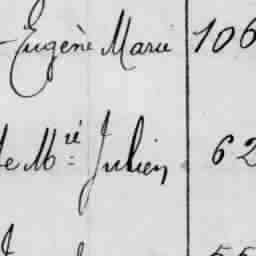 Eugène Marie 106
de M.ré Julien 62